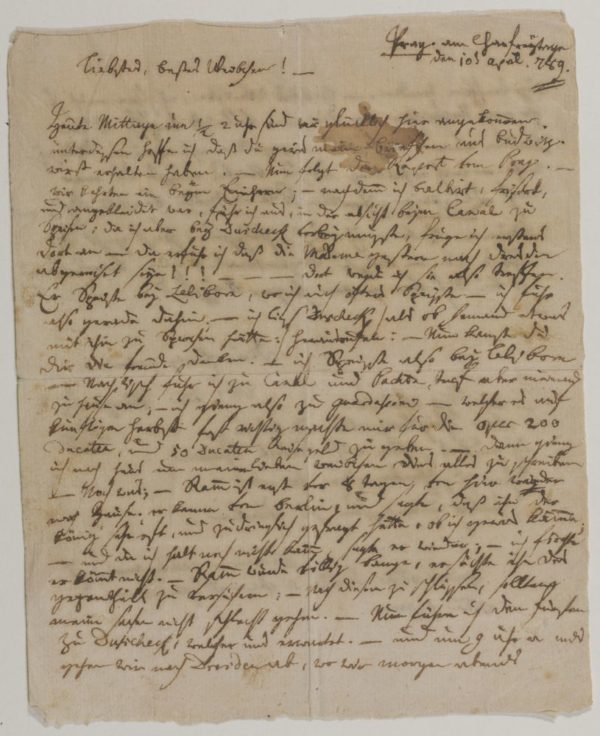 Prag. am Charfreytage
den 10t April. 789.
Liebstes, bestes Weibchen! —
Heute Mittags um ½ 2 uhr sind wir glücklich hier angekommen.
unterdessen hoffe ich daß du gewis mein briefchen aus budwitz
wirst erhalten haben. — Nun folgt der Rapport von Prag. —
wir kehrten ein beym Einhorn; — nachdemm ich balbirt, frisirt,
und angekleidet war, fuhr ich aus, in der absicht beym Canal zu
Speisen; da ich aber bey Duscheck vorbey muste, frug ich erstens
dort an — da erfuhr ich daß die Madame gestern nach dresden
abgereiset seye!!! — dort werde ich sie also treffen.
Er Speiste bey Leliborn, wo ich auch öfters Speiste — ich fuhr
also gerade dahin. — ich ließ Duscheck /: als ob jemand etwas
mit ihm zu Sprechen hätte :/ herausrufen: — Nun kannst du
dir die freude denken. — ich Speiste also bey Leliborn
— Nach tisch fuhr ich zu Canal und Pachta, traf aber niemand
zu hause an; — ich gieng also zu guardasoni — welcher es auf
künftigen herbst fast richtig machte mir für die oper 200
Ducaten, und 50 Ducaten Reisegeld zu geben. — dann gieng
ich nach haus um meinem lieben weibchen dies alles zu schreiben
— Noch was; — Ramm ist erst vor 8 tagen von hier wieder
nach Hause, er kamm von berlin, und sagte, daß ihn der
König sehr oft, und zudringlich gefragt hätte, ob ich gewis kämme,
— und da ich halt noch nicht kamm, sagte er wieder; — ich fürchte
er kömmt nicht. — Ramm wurde völlig bange, er suchte ihn des
gegentheil zu versichern; — nach diesem zu schliessen, sollen
meine sachen nicht schlecht gehen. — Nun führe ich den fürsten
zu Duscheck, welcher uns erwartet. — und um 9 uhr abends
gehen wir nach Dresden ab, wo wir morgen abends